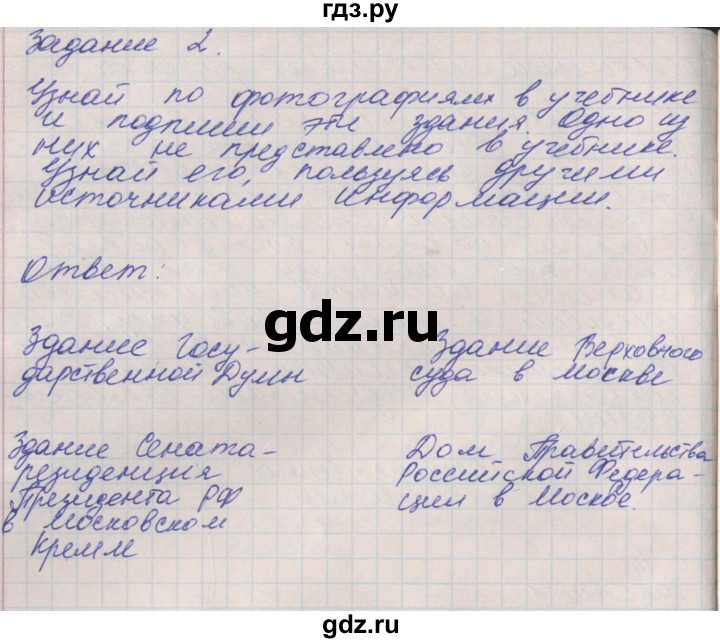 гдз.ру
Задание 2.
Узнай по фотографиям в учебнике
и подпиши эти здания. Одно из
них не представлено в учебнике.
Узнай его, пользуясь другими
источниками информации.
Ответ:
gdz.ru
Здание Госу-
дарственной Думы
Здание Верховного
суда в Москве
Здание Сената-
резиденция
Президента РФ
в Московском
Кремле
Дом Правительства
Российской Федера-
ции в Москве.
gdz.ru